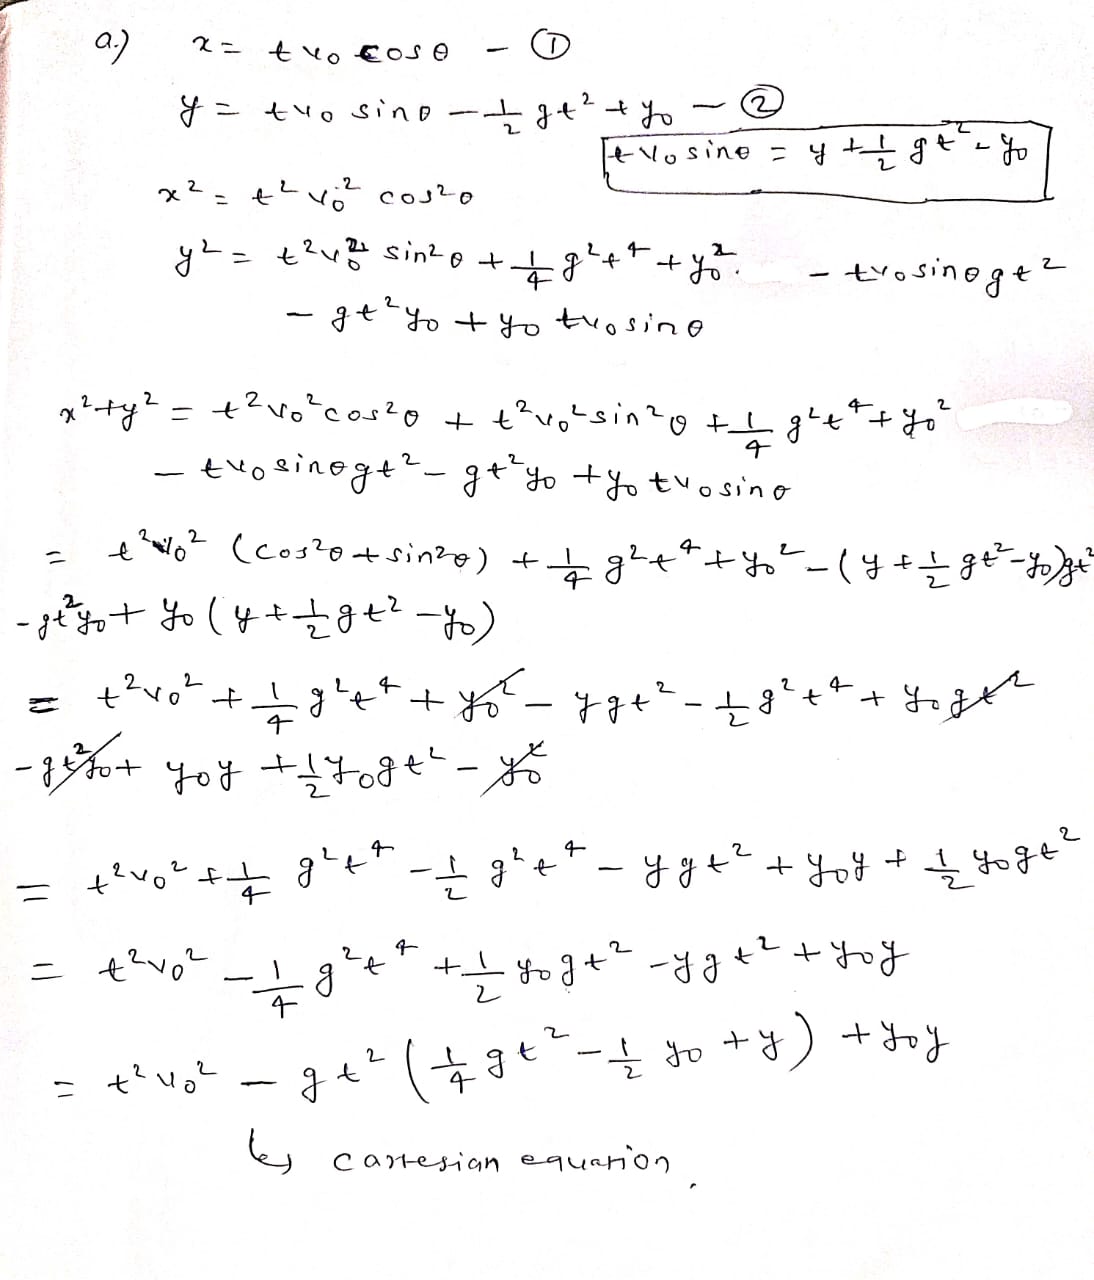 a.) x = t v₀ cos θ – ①
y = t v₀ sin θ – 1/2 gt² + y₀ – ②
t v₀ sin θ = y + 1/2 gt² - y₀
x² = t² v₀² cos² θ
y² = t² v₀² sin² θ + 1/4 g² t⁴ + y₀² – t v₀ sin θ gt²
– gt² y₀ + y₀ t v₀ sin θ
x² + y² = t² v₀² cos² θ + t² v₀² sin² θ + 1/4 g² t⁴ + y₀²
– t v₀ sin θ gt² – gt² y₀ + y₀ t v₀ sin θ
= t² v₀² (cos² θ + sin² θ) + 1/4 g² t⁴ + y₀² – (y + 1/2 gt² – y₀) gt²
- gt² y₀ + y₀ (y + 1/2 gt² – y₀)
= t² v₀² + 1/4 g² t⁴ + y₀² – y gt² – 1/2 g² t⁴ + y₀ gt²
- gt² y₀ + y₀ y + 1/2 y₀ gt² – y₀²
= t² v₀² + 1/4 g² t⁴ – 1/2 g² t⁴ – y gt² + y₀ y + 1/2 y₀ gt²
= t² v₀² – 1/4 g² t⁴ + 1/2 y₀ gt² – y gt² + y₀ y
= t² v₀² – gt² (1/4 gt² – 1/2 y₀ + y) + y₀ y
↳ cartesian equation.